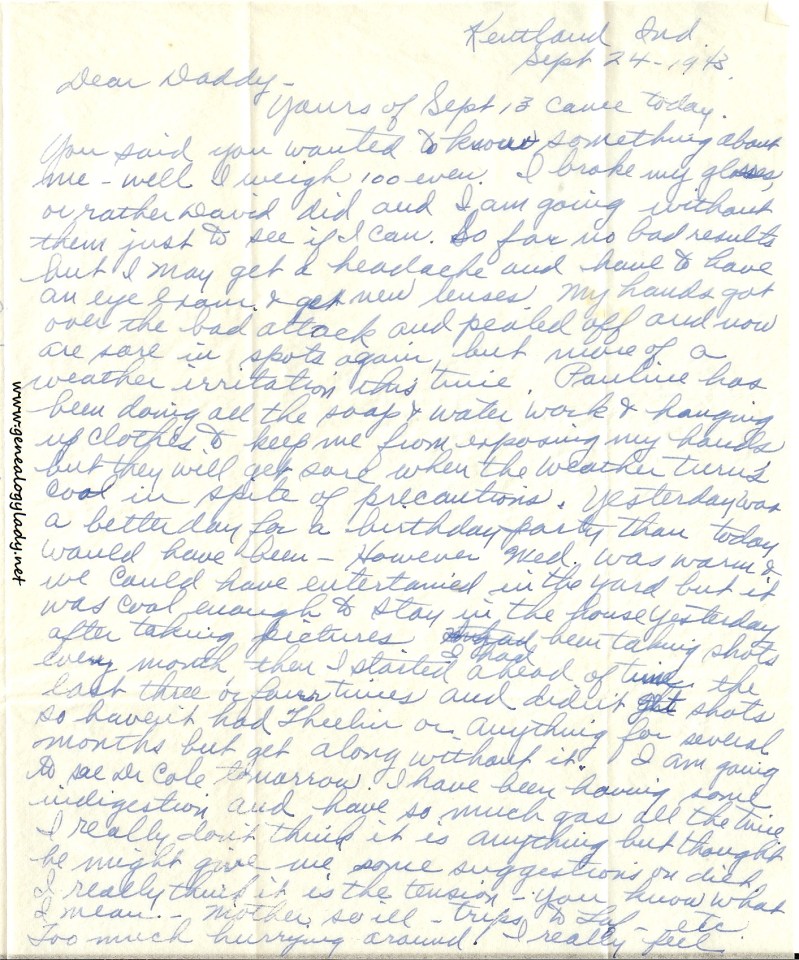 Kentland Ind.
Sept 24-1943.
Dear Daddy-
Yours of Sept 13 came today.
You said you wanted to know something about
me - well I weigh 100 even. I broke my glasses,
or rather David did and I am going without
them just to see if I can. So far no bad results
but I may get a headache and have to have
an eye exam. & get new lenses. My hands got
over the bad attack and pealed off and now
are sore in spots again, but more of a
weather irritation this time. Pauline has
been doing all the soap & water work & hanging
up clothes to keep me from exposing my hands
but they will get sore when the weather turns
cool in spite of precautions. Yesterday was
a better day for a birthday party than today
would have been - However Wed. was warm &
we could have entertained in the yard but it
was cool enough to stay in the house yesterday
after taking pictures. I had been taking shots
every month then I started ahead of time the
last three or four times and didn't get shots
so haven't had Theelin or anything for several
months but get along without it. I am going
to see Dr Cole tomorrow. I have been having some
indigestion and have so much gas all the time
I really don't think it is anything but thought
he might give me some suggestions on diet.
I really think it is the tension - you know what
I mean - mother so ill - trips to Laf - etc.
Too much hurrying around. I really feel
www.genealogylady.net